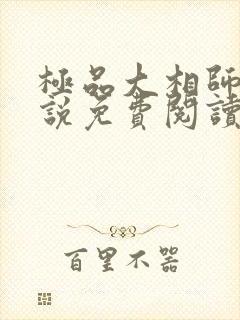 極品大相師
說免費閱讀
百里不器